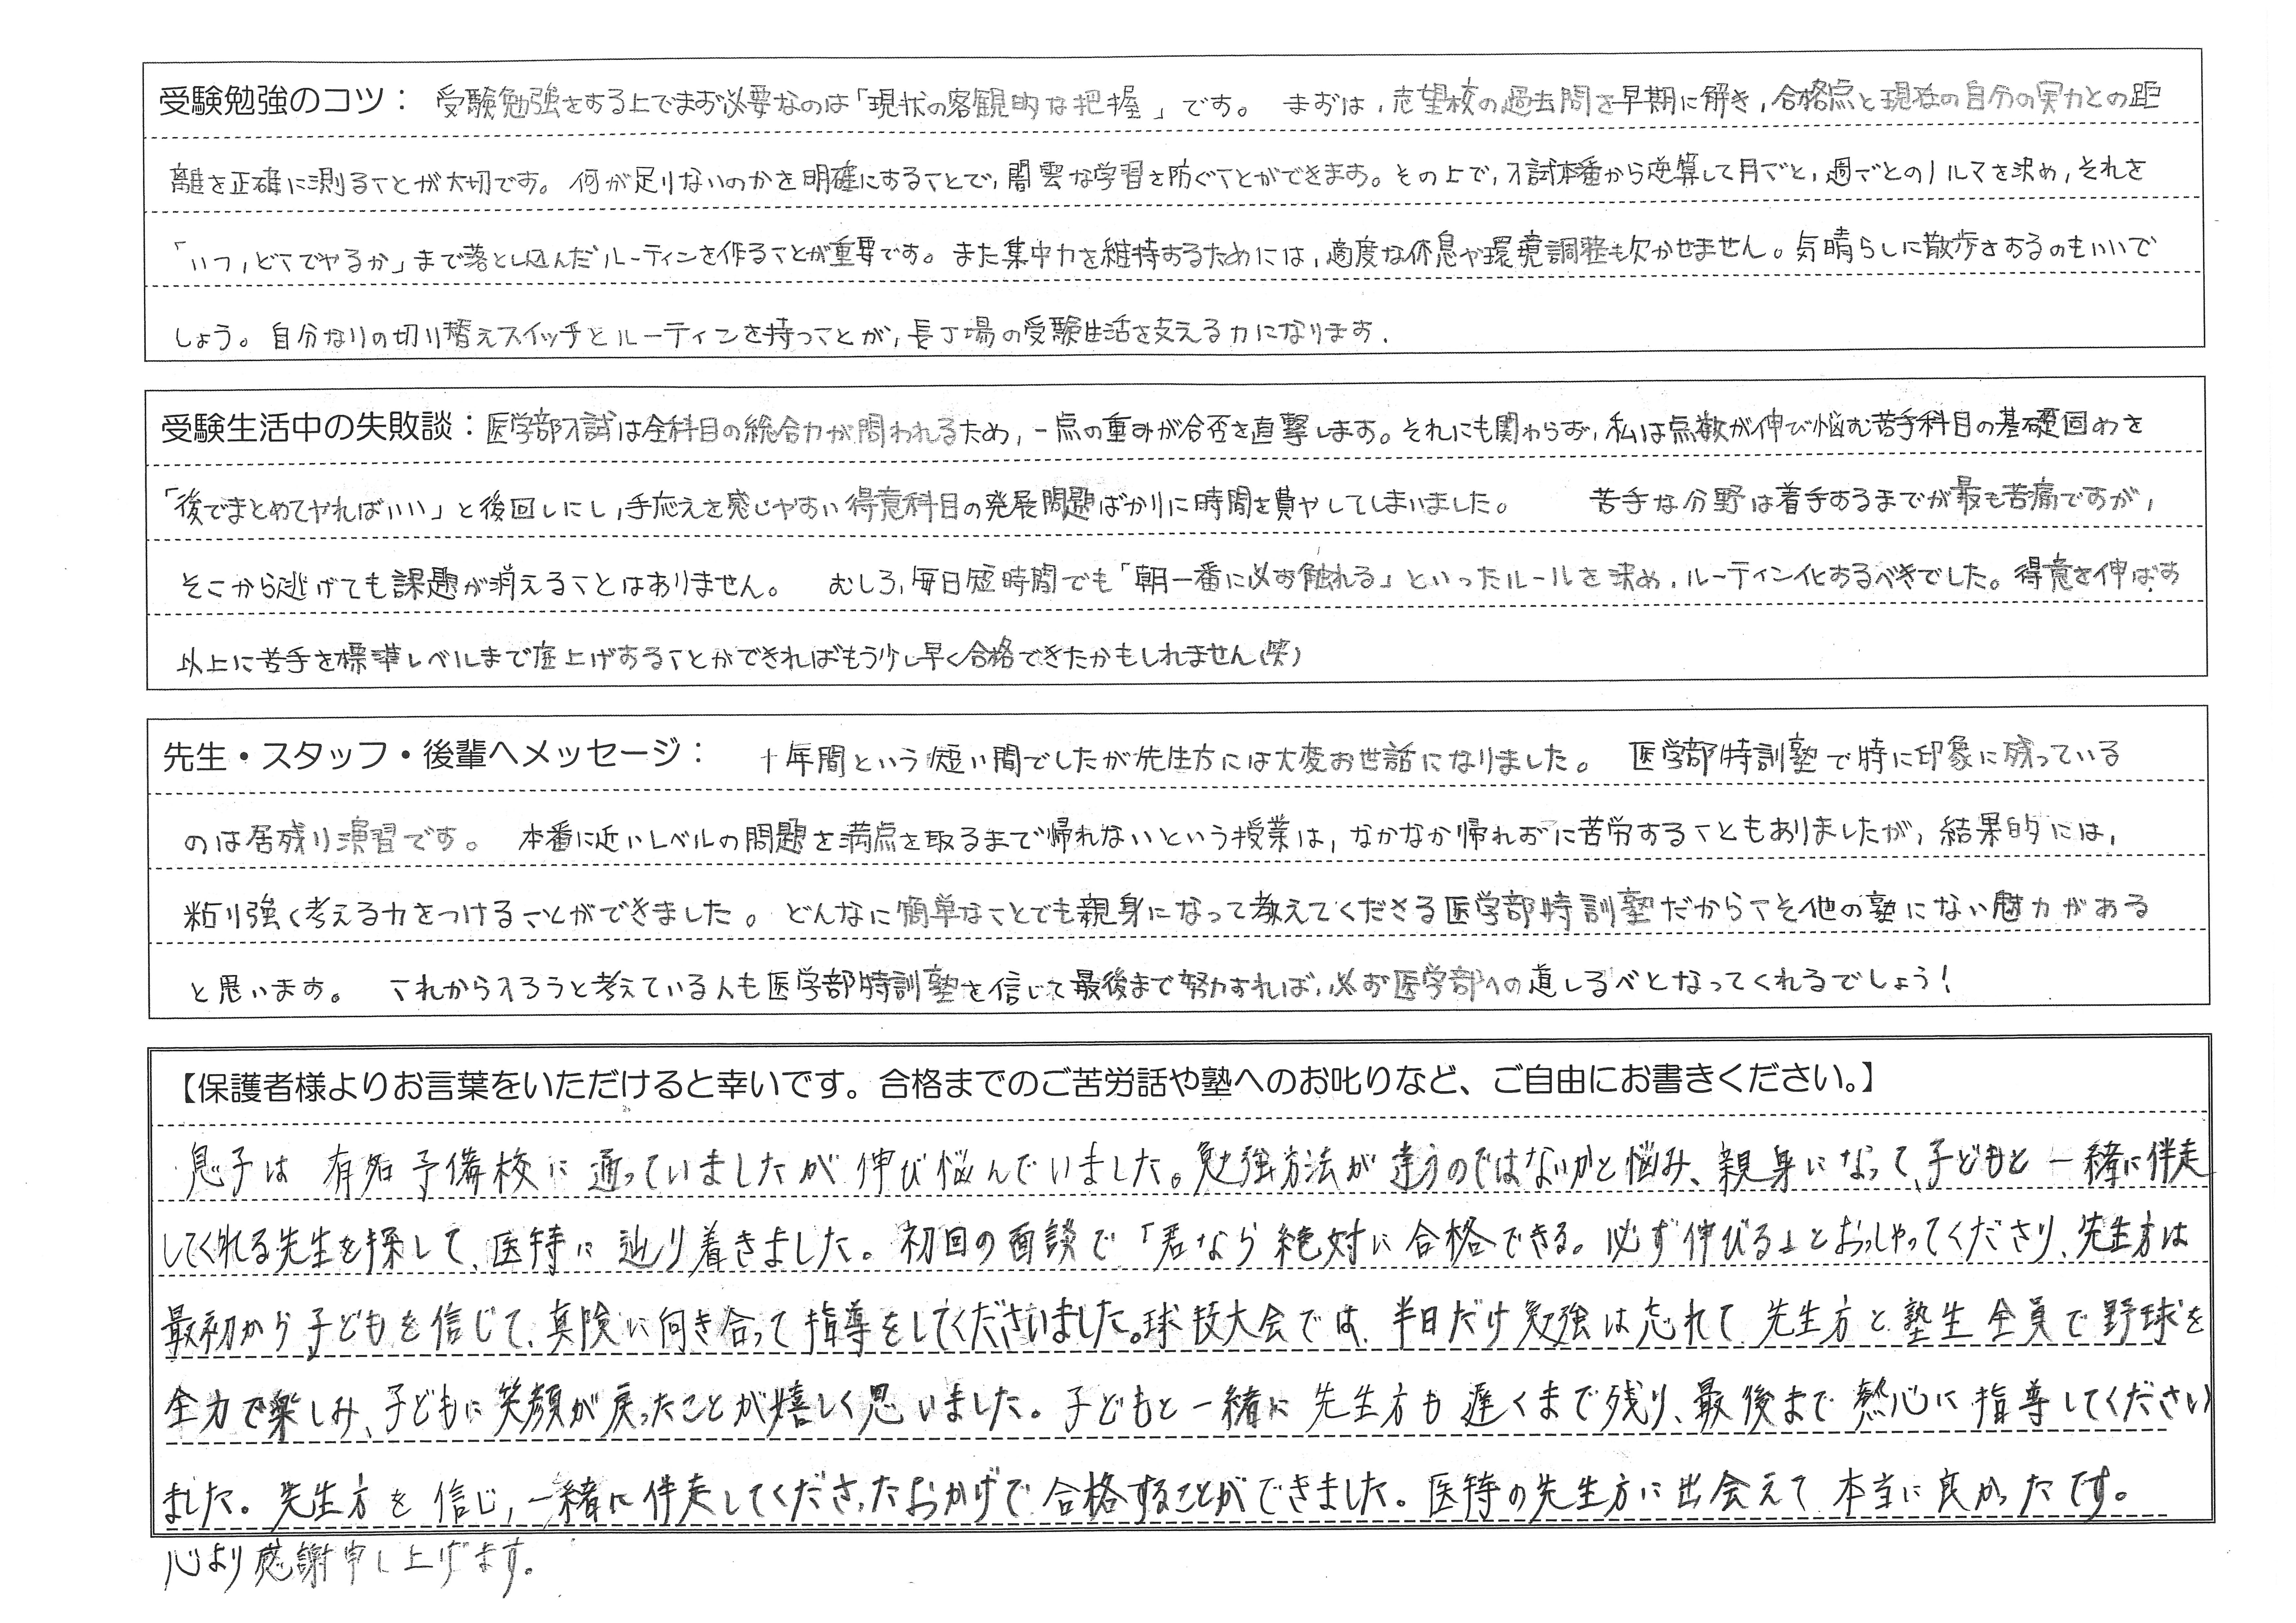 受験勉強のコツ： 受験勉強をする上でまず必要なのは「現状の客観的な把握」です。 まずは，志望校の過去問を早期に解き，合格点と現在の自分の実力との距
離を正確に測ることが大切です。何が足りないのかを明確にすることで，闇雲な学習を防ぐことができます。その上で，入試本番から逆算して月ごと，週ごとのノルマを決め，それを
「いつ，どこでやるか」まで落とし込んだルーティンを作ることが重要です。また集中力を維持するためには，適度な休息や環境調整も欠かせません。気晴らしに散歩をするのもいいで
しょう。自分なりの切り替えスイッチとルーティンを持つことが，長丁場の受験生活を支える力になります．
受験生活中の失敗談：医学部入試は全科目の総合力が問われるため，一点の重みが合否を直撃します。それにも関わらず，私は点数が伸び悩む苦手科目の基礎固めを
「後でまとめてやればいい」と後回しにし，手応えを感じやすい得意科目の発展問題ばかりに時間を費やしてしまいました。 苦手な分野は着手するまでが最も苦痛ですが，
そこから逃げても課題が消えることはありません。 むしろ，毎日短時間でも「朝一番に必ず触れる」といったルールを決め，ルーティン化するべきでした。得意を伸ばす
以上に苦手を標準レベルまで底上げすることができればもう少し早く合格できたかもしれません(笑)
先生・スタッフ・後輩へメッセージ： 十年間という短い間でしたが先生方には大変お世話になりました。 医学部特訓塾で特に印象に残っている
のは居残り演習です。 本番に近いレベルの問題を満点を取るまで帰れないという授業は，なかなか帰れずに苦労することもありましたが，結果的には，
粘り強く考える力をつけることができました。どんなに簡単なことでも親身になって教えてくださる医学部特訓塾だからこそ他の塾にない魅力がある
と思います。 これから入ろうと考えている人も医学部特訓塾を信じて最後まで努力すれば，必ず医学部への道しるべとなってくれるでしょう！
【保護者様よりお言葉をいただけると幸いです。合格までのご苦労話や塾へのお叱りなど、ご自由にお書きください。】
息子は 有名予備校に通っていましたが伸び悩んでいました。勉強方法が違うのではないかと悩み、親身になって、子どもと一緒に伴走
してくれる先生を探して、医特に辿り着きました。初回の面談で「君なら絶対に合格できる。必ず伸びる」とおっしゃってくださり、先生方は
最初から子どもを信じて、真険に向き合って指導をしてくださいました。球技大会では、半日だけ勉強は忘れて先生方と塾生全員で野球を
全力で楽しみ、子どもに笑顔が戻ったことが嬉しく思いました。子どもと一緒に先生方も遅くまで残り、最後まで熱心に指導してください
ました。先生方を信じ，一緒に伴走してくださったおかげで合格することができました。医特の先生方に出会えて本当に良かったです。
心より感謝申し上げます。